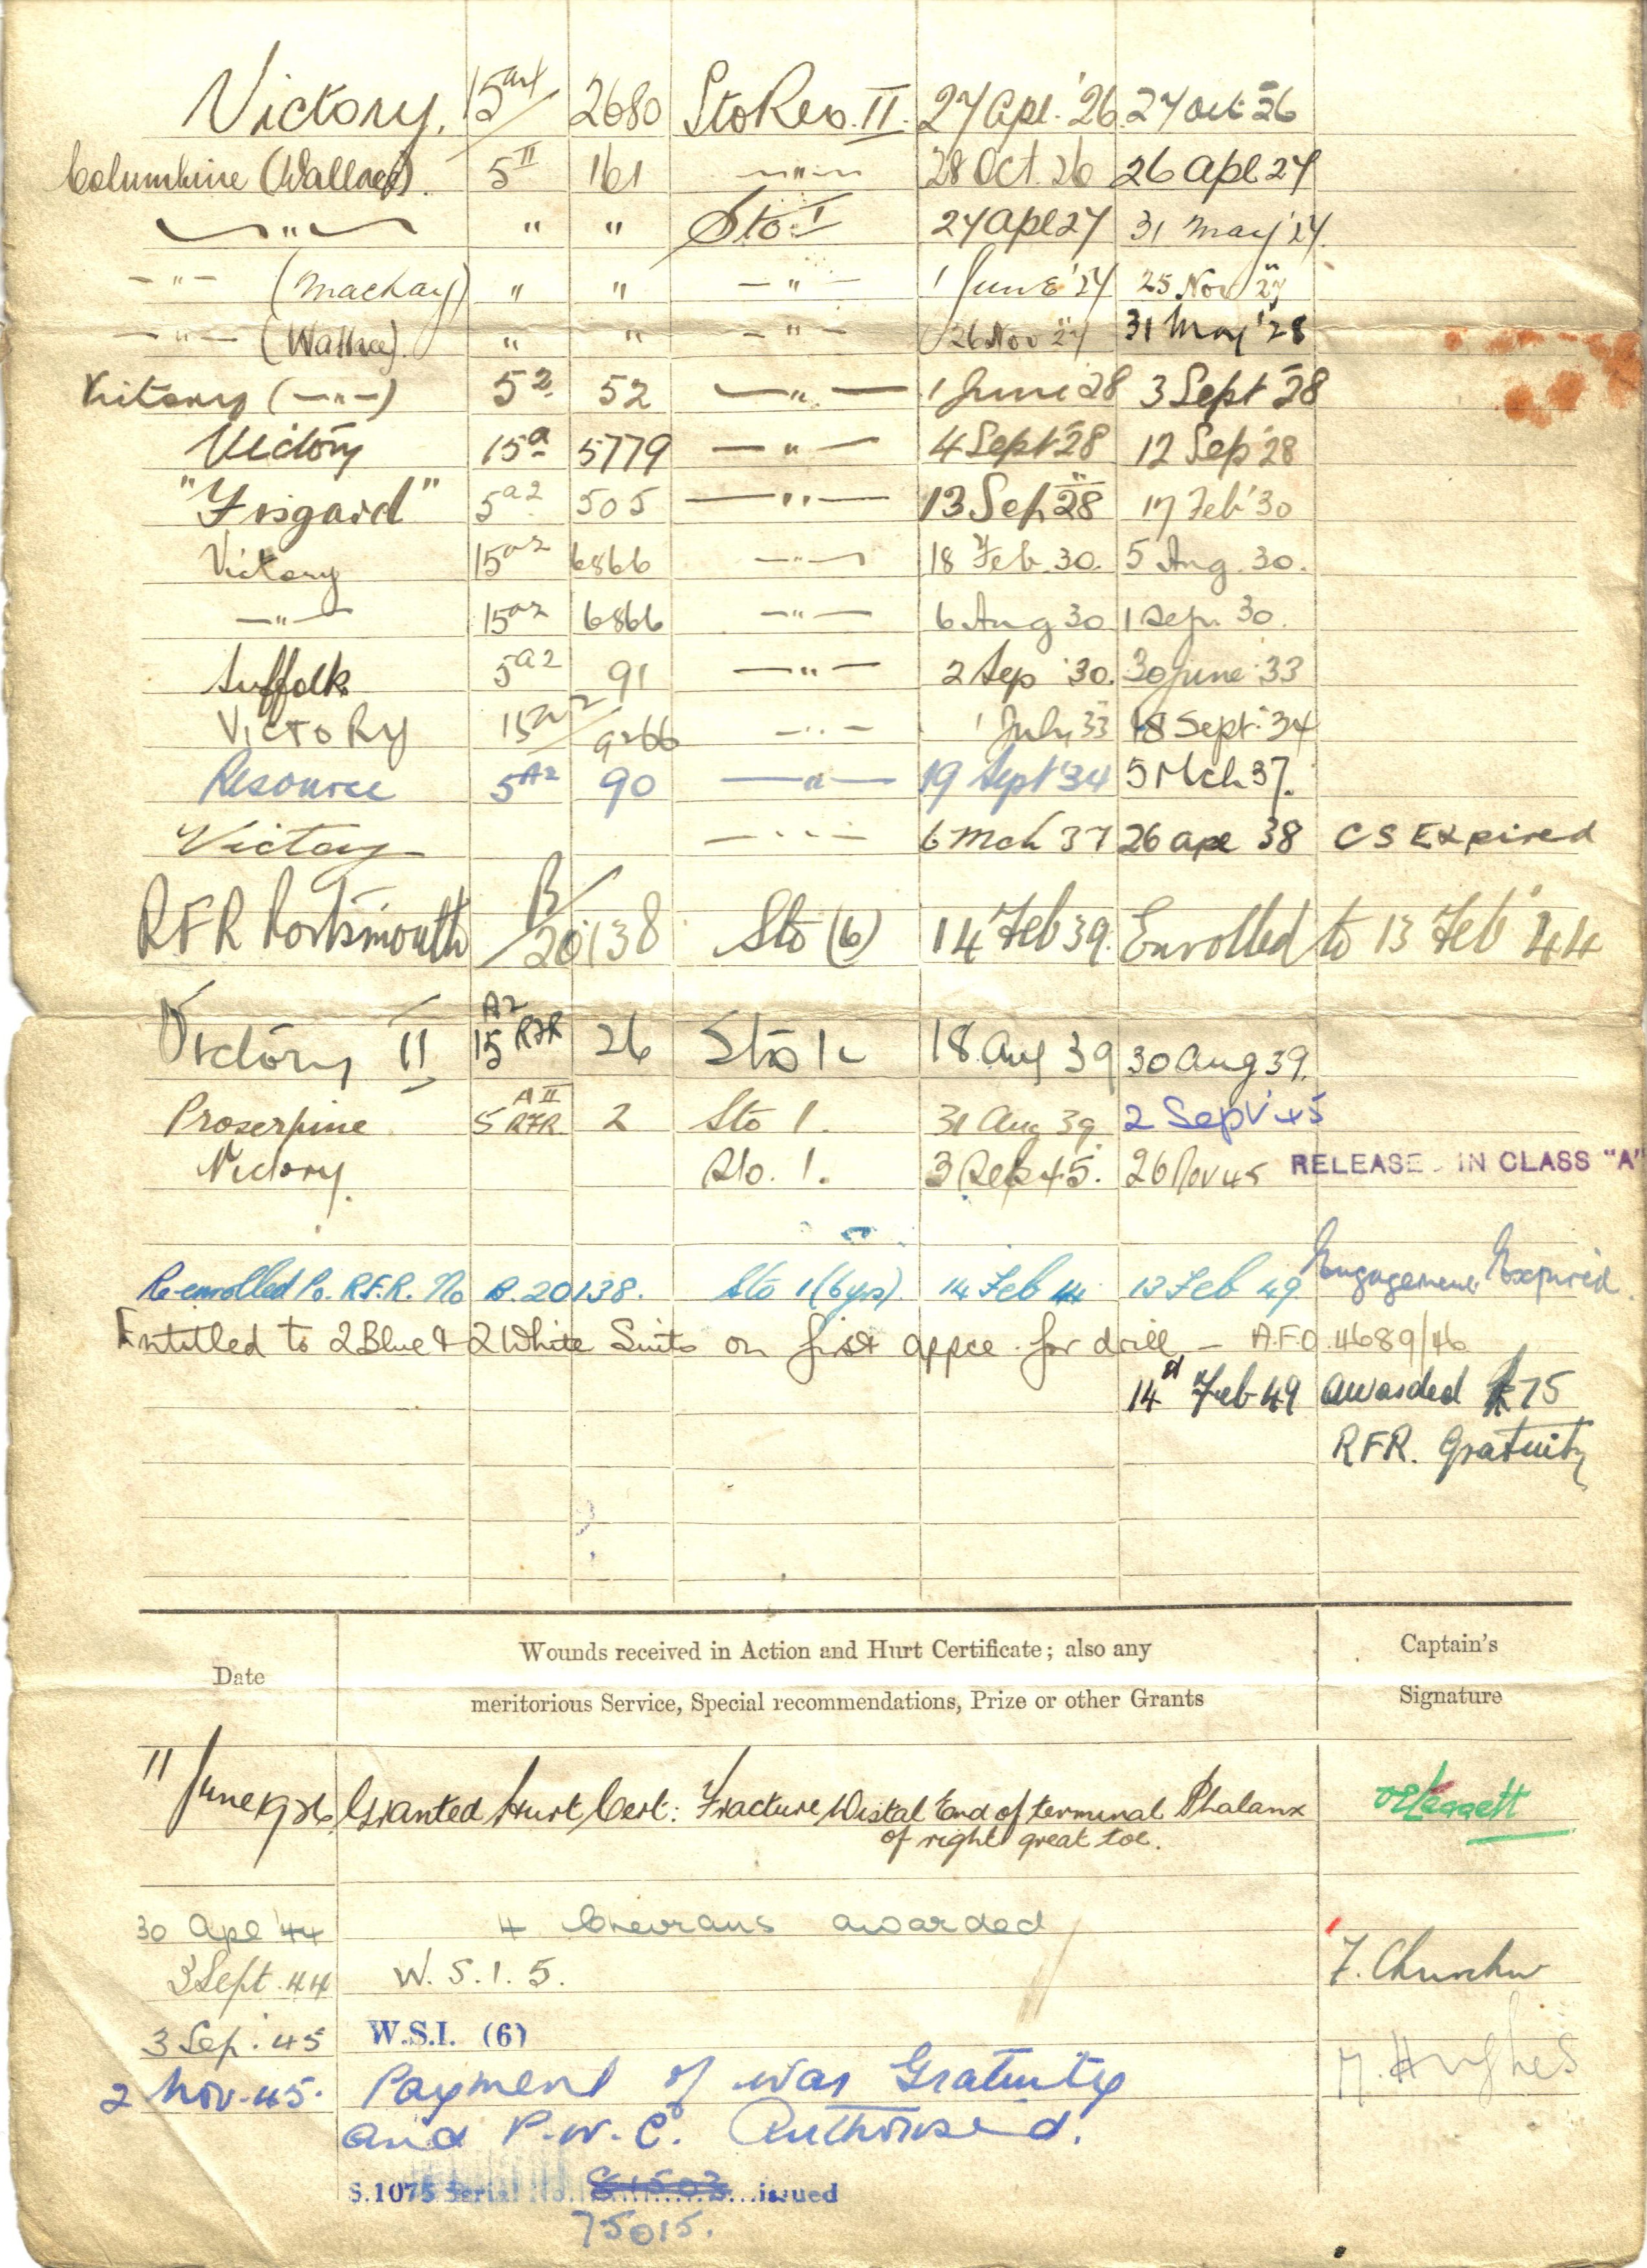 Victory. 15 2680 Sto Rco. II. 27 Apl. '26 27 Oct 26
Columbine (Wallace). 5 II 161 —"— 28 Oct. 26 26 Apl 27
—"— " " Sto. I 27 Apl 27 31 May '27.
—"— (Mackay) " " —"— 1 June '27 25 Nov 27
—"— (Wallace). " " —"— 26 Nov 27 31 May '28
Victory (—"—) 5² 52 —"— 1 June 28 3 Sept 28
Victory 15ᵃ 5779 —"— 4 Sept 28 12 Sep 28
"Fisgard" 5ᵃ² 505 —"— 13 Sep. 28 17 Feb '30
Victory 15ᵃ² 6866 —"— 18 Feb. 30. 5 Aug. 30.
—"— 15ᵃ² 6866 —"— 6 Aug 30 1 Sep. 30.
Suffolk 5ᵃ² 91 —"— 2 Sep '30. 30 June 33
Victory 15ᵃ² 9266 —"— 1 July 33 18 Sept. 34
Resource 5ᴬ² 90 —"— 19 Sept '34 5 Mch 37.
Victory —"— 6 Mch 37 26 Apl 38 CS Expired
RFR Portsmouth B/20138 Sto (6) 14 Feb 39. Enrolled to 13 Feb '44
Victory II A2 15 RFR 26 Sto 1. 18 Aug 39 30 Aug 39.
Proserpine 5 AII RFR 2 Sto 1. 31 Aug 39. 2 Sept 45
Victory. Sto. 1. 3 Sep 45. 26 Nov 45 RELEASE IN CLASS "A"
Re-enrolled Po. R.F.R. No B.20138. Sto 1 (6yrs) 14 Feb 44 13 Feb 49 Engagement Expired.
Entitled to 2 Blue & 2 White Suits on first appce. for drill — A.F.O. 4689/46
14 Feb 49 Awarded £75
RFR. Gratuity
Date
Wounds received in Action and Hurt Certificate; also any
meritorious Service, Special recommendations, Prize or other Grants
Captain's
Signature
11 June 1926 Granted Hurt Cert: Fracture Distal End of terminal Phalanx
of right great toe.
30 Apl 44 4 Chevrons awarded
3 Sept. 44 W.S.I. 5.
3 Sep. 45 W.S.I. (6)
Hughes
2 Nov. 45. Payment of War Gratuity
and P.W.C. Authorised.
S.1075 Serial No. 81503 issued
75015.